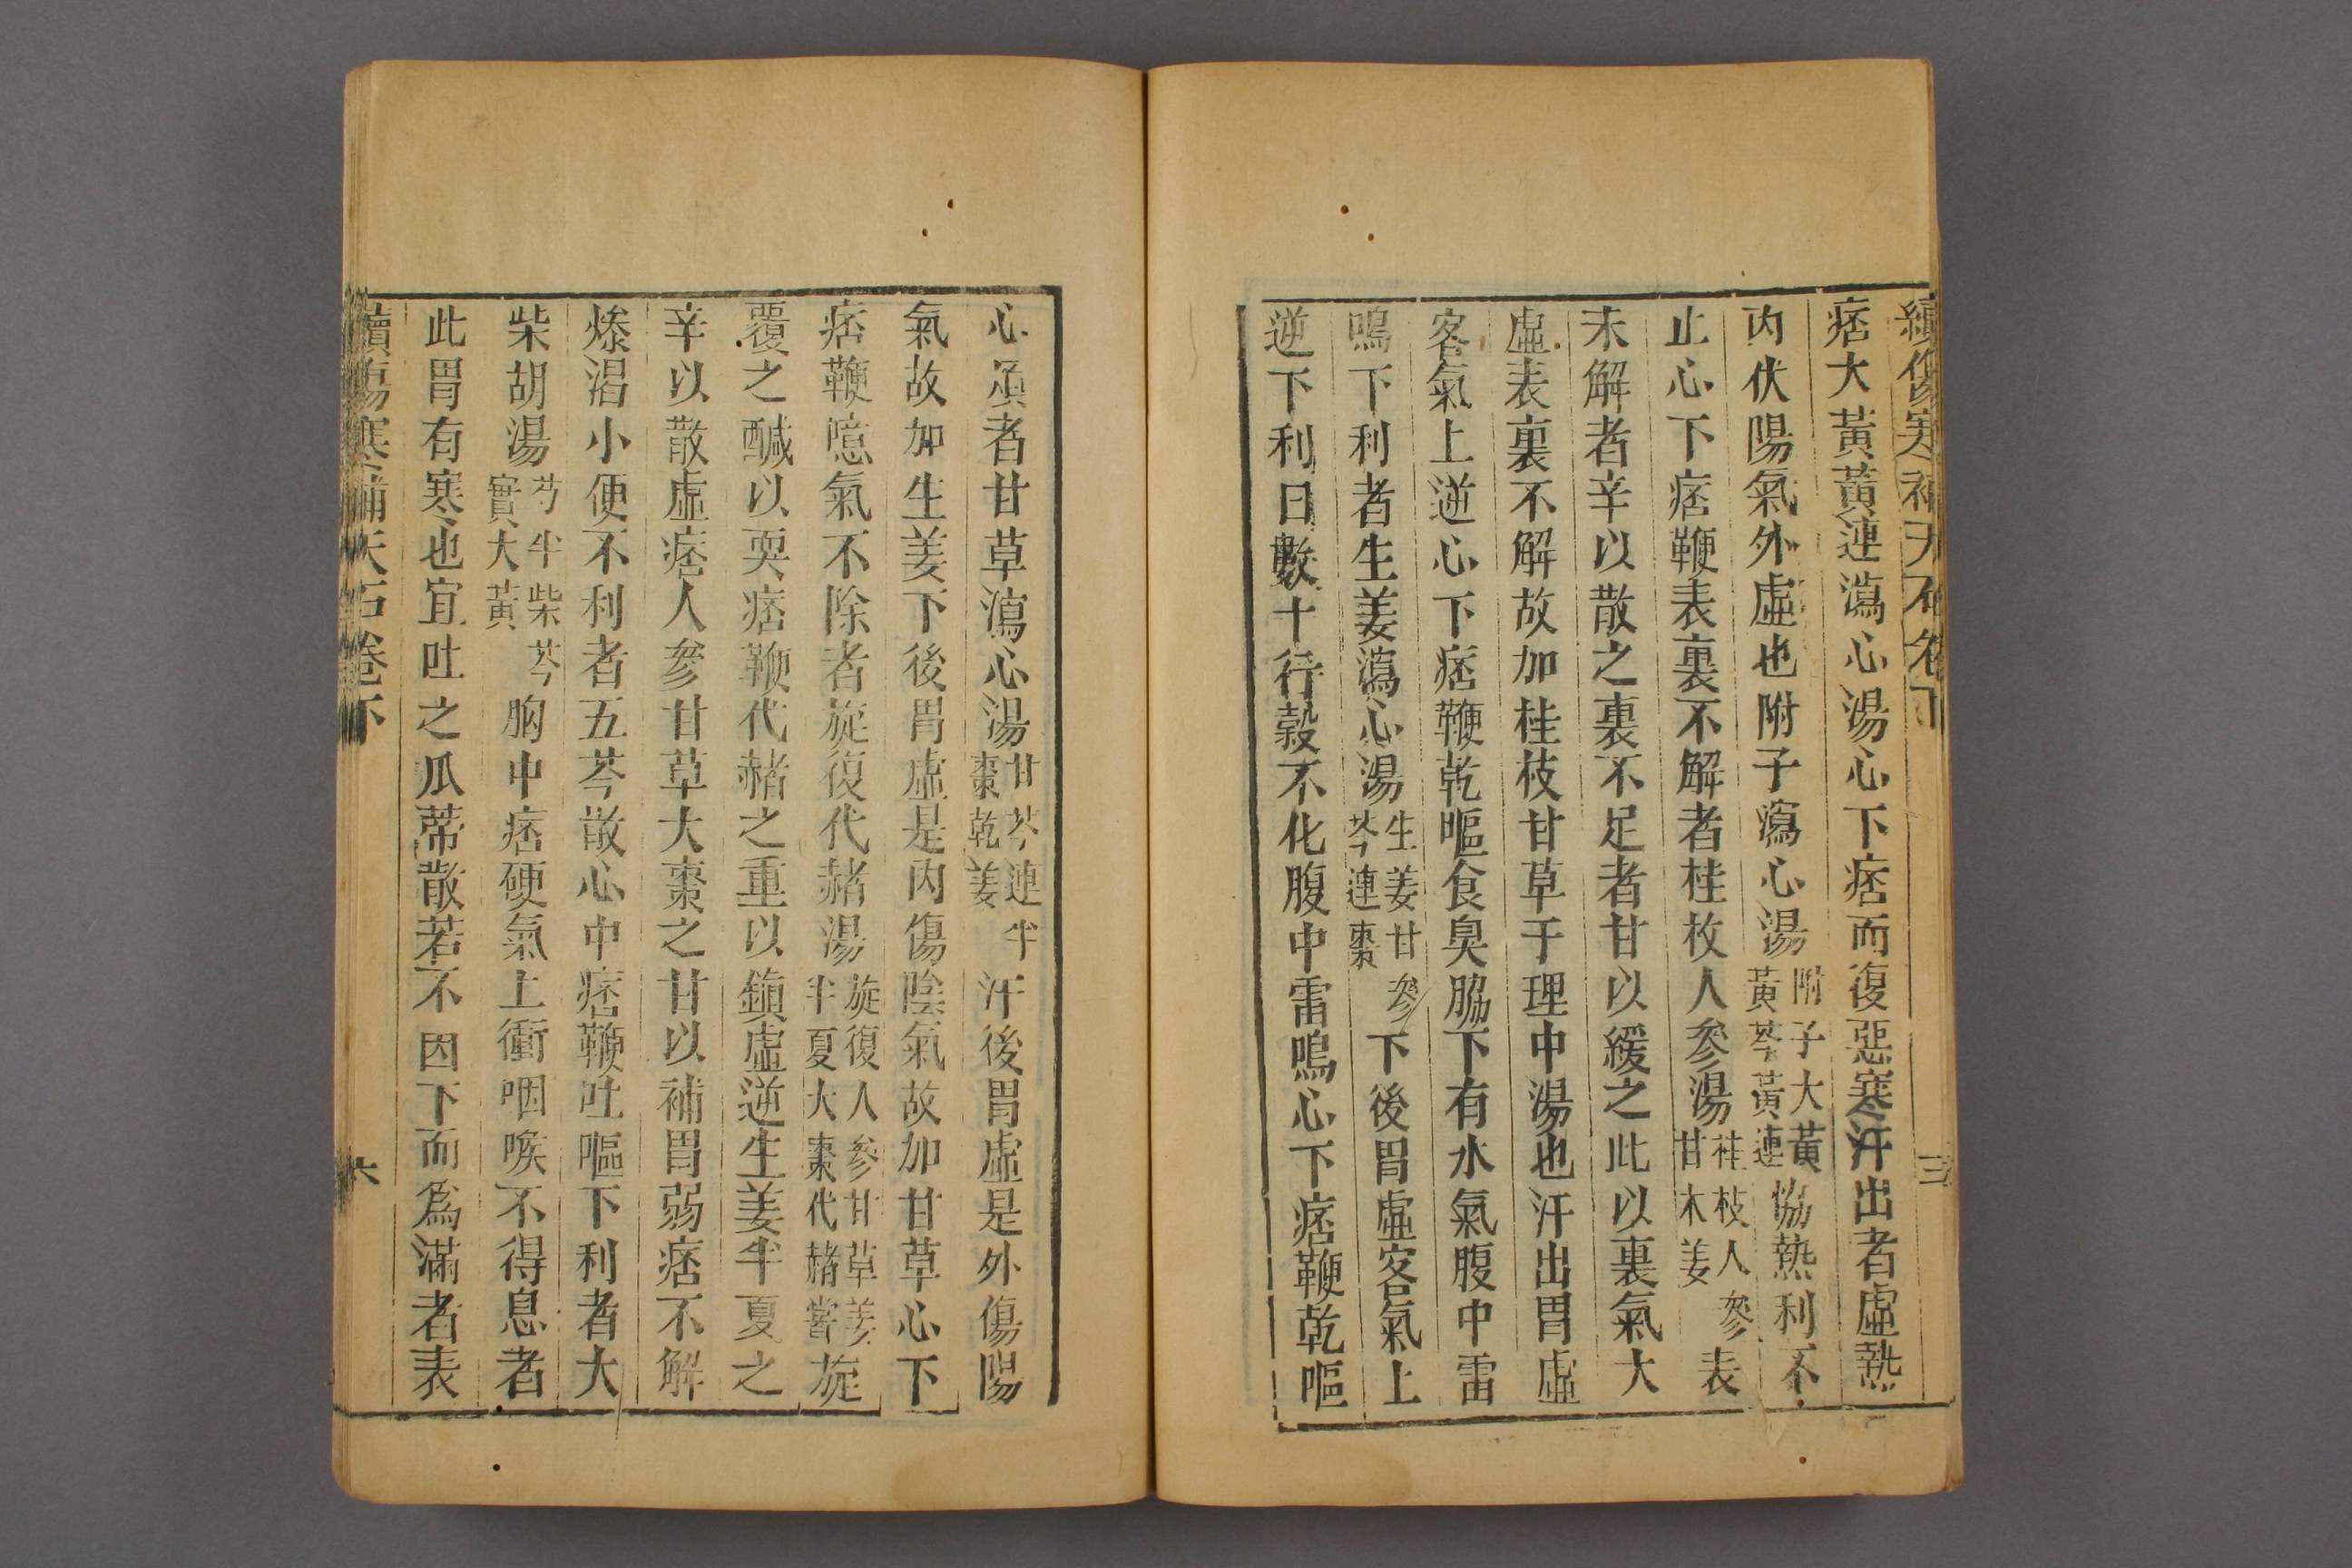 續傷寒補天石卷下 三
痞大黃黃連瀉心湯心下痞而復惡寒汗出者虛熱
內伏陽氣外虛也附子瀉心湯附子大黃黃芩黃連協熱利不
止心下痞鞕表裏不解者桂枚人參湯桂枝人參甘木姜表
未解者辛以散之裏不足者甘以緩之此以裏氣大
虛表裏不解故加桂枝甘草于理中湯也汗出胃虛
客氣上逆心下痞鞕乾嘔食臭脇下有水氣腹中雷
鳴下利者生姜瀉心湯生姜甘參芩連棗下後胃虛客氣上
逆下利日數十行穀不化腹中雷鳴心下痞鞕乾嘔
心煩者甘草瀉心湯甘芩連半棗乾姜汗後胃虛是外傷陽
氣故加生姜下後胃虛是內傷陰氣故加甘草心下
痞鞕噫氣不除者旋復代赭湯旋復人參甘草姜半夏大棗代赭嘗旋
覆之醎以耎痞鞕代赭之重以鎮虛逆生姜半夏之
辛以散虛痞人參甘草大棗之甘以補胃弱痞不解
燥渴小便不利者五苓散心中痞鞕吐嘔下利者大
柴胡湯芍半柴芩實大黃胸中痞硬氣上衝咽喉不得息者
此胃有寒也宜吐之瓜蒂散若不因下而為滿者表
續傷寒補天石卷下 六